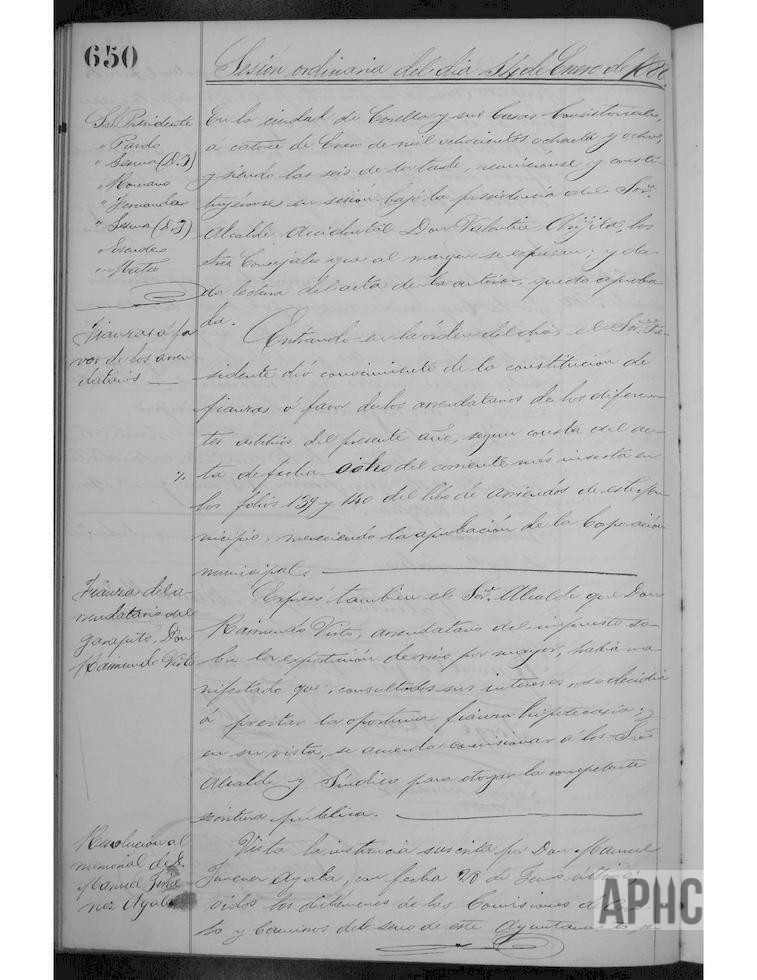 650
Sesión ordinaria del dia 14 de Enero de 1888.
S.S. Presidente
" Pardo
" Sesma (D. J)
" Romano
" Fernandez
" Sesma (D. J)
" Escudero
" Mateo
En la ciudad de Corella y sus Casas Consistoriales,
á catorce de Enero de mil ochocientos ochenta y ocho,
y siendo las seis de la tarde, reuniéronse y consti-
tuyéronse en sesión bajo la presidencia del Sor.
Alcalde Accidental Don Valentin los
Sres Concejales que al márgen se expresan; y da-
da lectura del acta de la anterior, quedó aproba-
da.
Fianzas á fa
vor de los arren
datarios
Entrando en la órden del dia, el Sor. Pre-
sidente dió conocimiento de la constitución de
fianzas á favor de los arrendatarios de los diferen-
tes arbitrios del presente año, segun consta del ac-
ta de fecha ocho del corriente més inserta en
los fólios 139 y 140 del libro de arriendos de este Mu-
nicipio, mereciendo la aprobación de la Corporación
municipal.
Fianza del a-
rrendatario del
garapito, Don
Raimundo Virto
Expresó tambien el Sor. Alcalde que Don
Raimundo Virto, arrendatario del impuesto so-
bre la exportación de vino por mayor, habia ma-
nifestado que, consultados sus intereses, se decidia
á prestar la oportuna fianza hipotecaria; y
en su vista, se acuerda comisionar á los Sres
Alcalde y Síndico para otorgar la competente
escritura pública.
Resolucion al
memorial de D.
Manuel Jime
nez Ayala
Vista la instancia suscrita por Don Manuel
Jimenez Ayala, con fecha 28 de último,
oidos los dictámenes de las Comisiones de
y Caminos del seno de este Ayuntamiento,
APHC